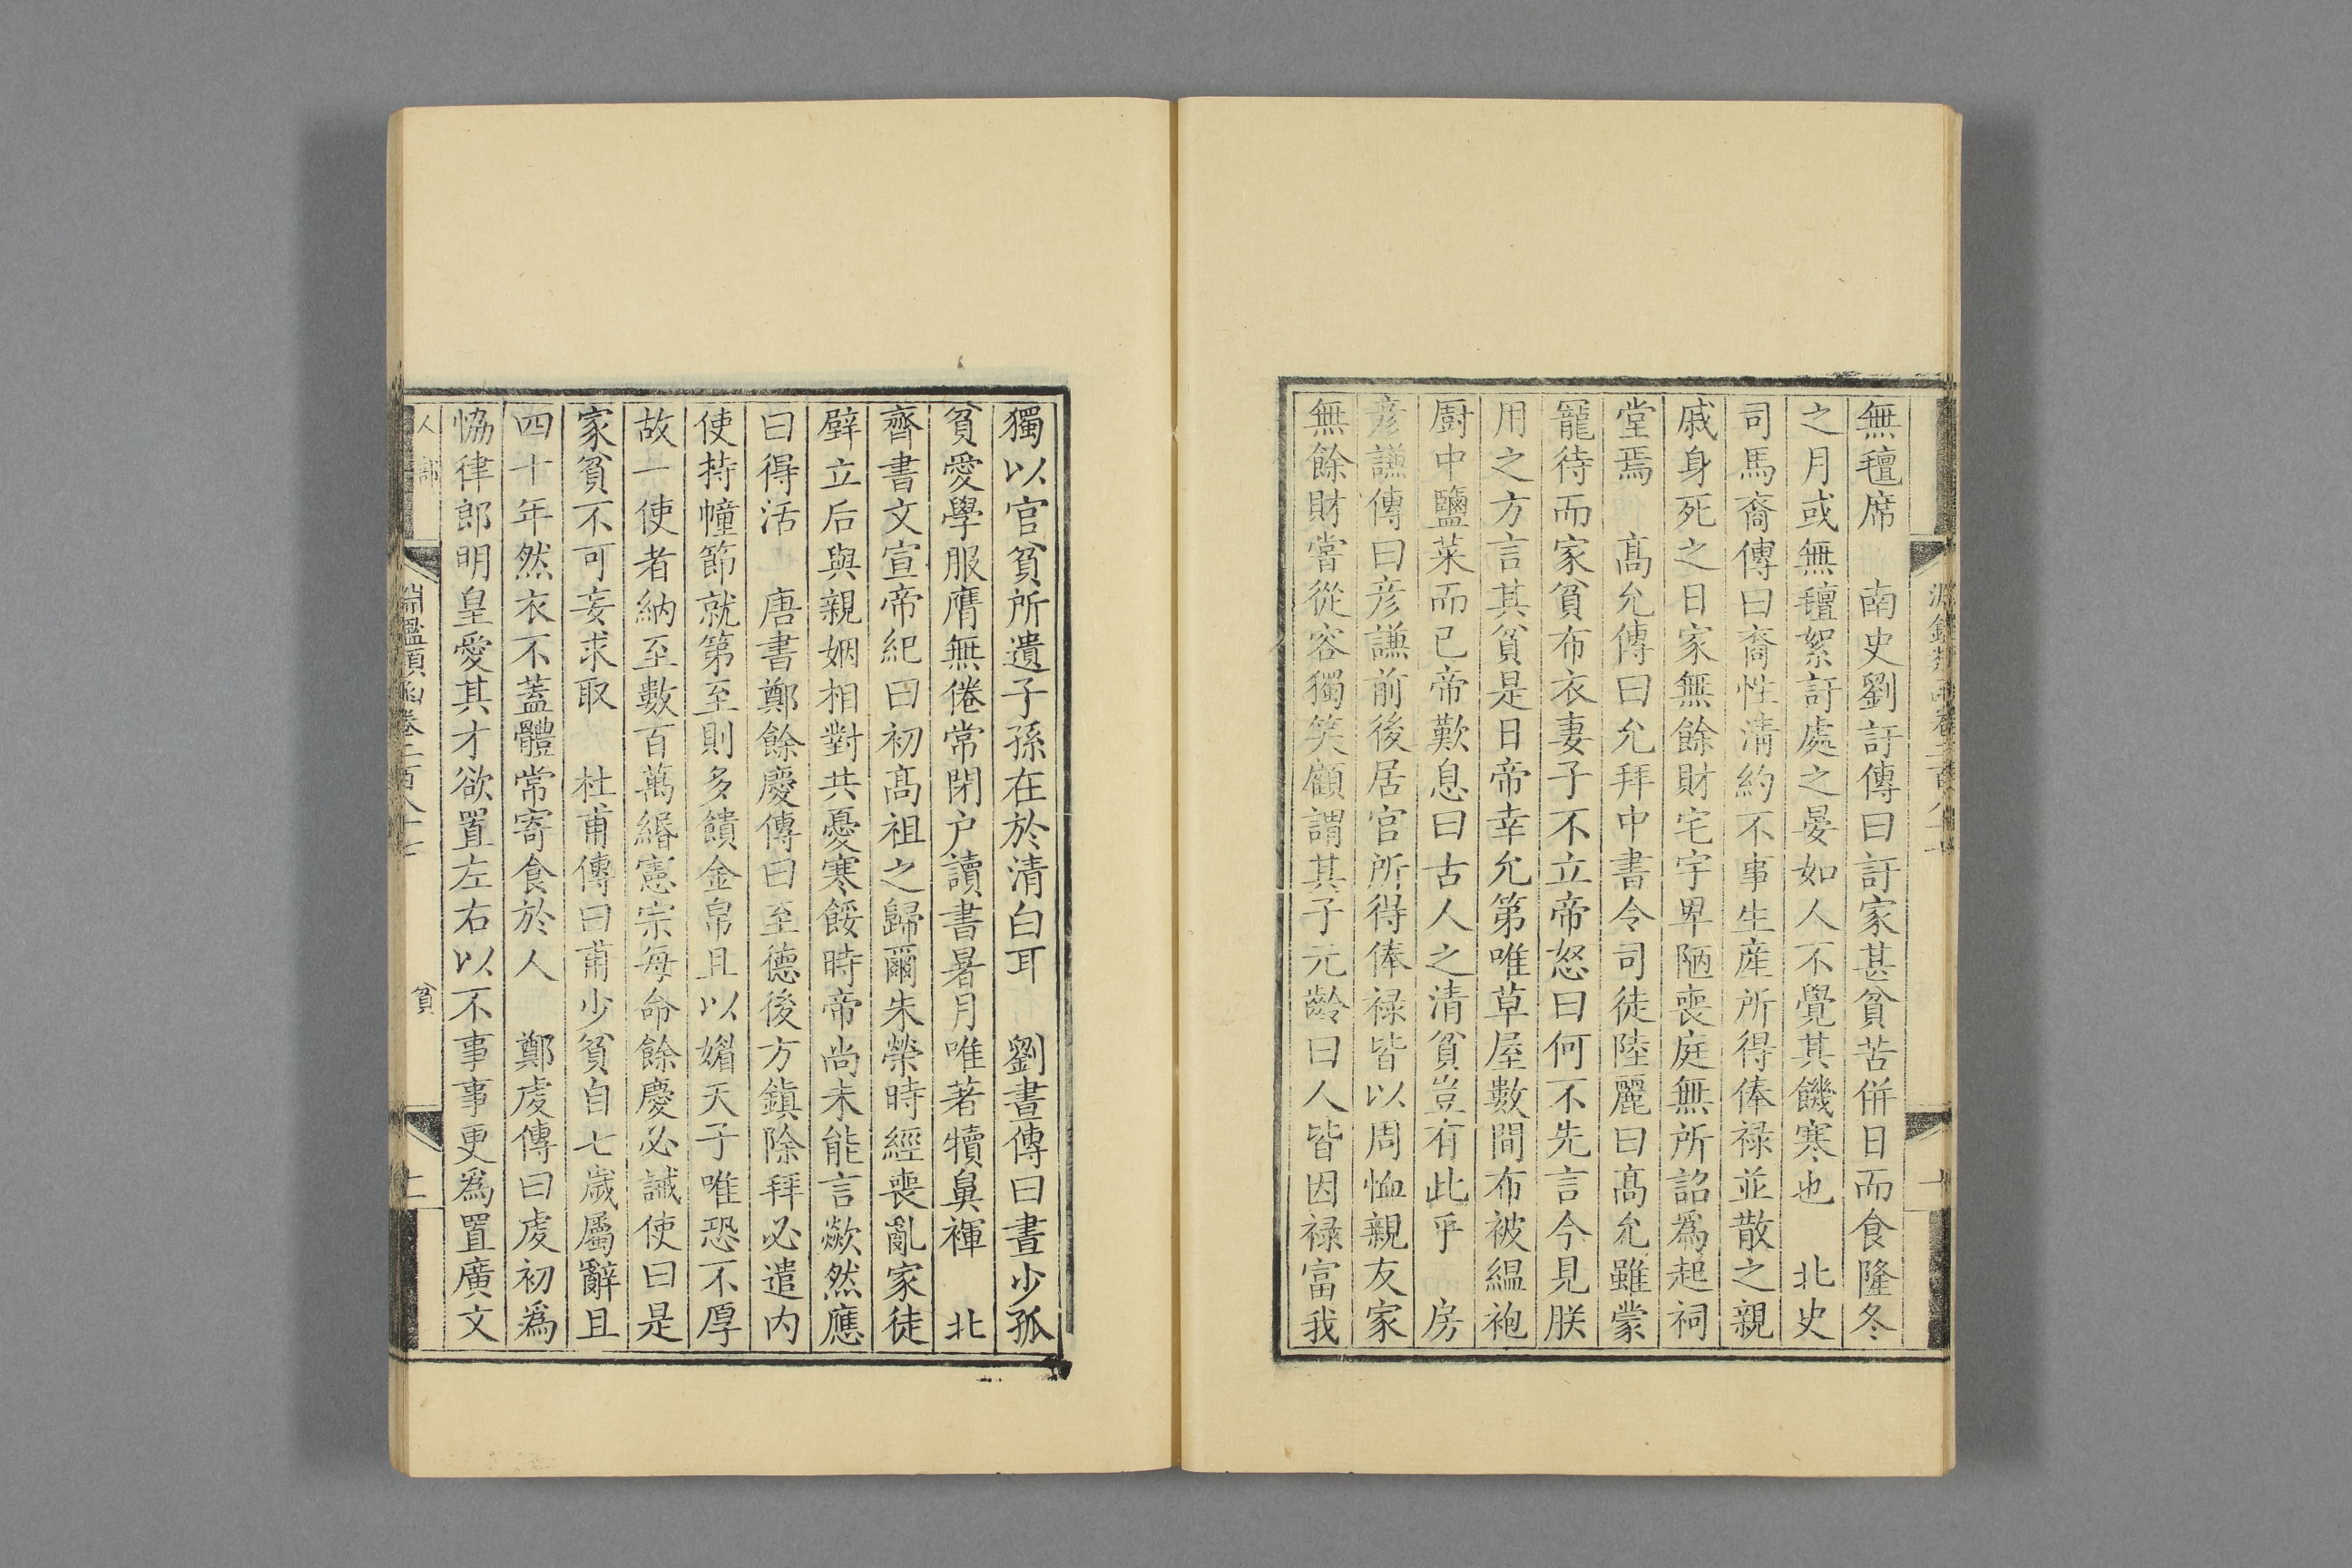 無氊席　南史劉訏傳曰訏家甚貧苦併日而食隆冬
之月或無氊絮訏處之晏如人不覺其饑寒也　北史
司馬裔傳曰裔性清約不事生産所得俸禄並散之親
戚身死之日家無餘財宅宇卑陋喪庭無所詔爲起祠
堂焉　髙允傳曰允拜中書令司徒陸麗曰髙允雖蒙
寵待而家貧布衣妻子不立帝怒曰何不先言今見朕
用之方言其貧是日帝幸允第唯草屋數間布被緼袍
厨中鹽菜而已帝歎息曰古人之清貧豈有此乎　房
彦謙傳曰彦謙前後居官所得俸禄皆以周恤親友家
無餘財嘗從容獨笑顧謂其子元齡曰人皆因禄富我
獨以官貧所遺子孫在於清白耳　劉晝傳曰晝少孤
貧愛學服膺無倦常閉户讀書暑月唯著犢鼻褌　北
齊書文宣帝紀曰初髙祖之歸爾朱榮時經喪亂家徒
壁立后與親姻相對共憂寒餒時帝尚未能言欻然應
曰得活　唐書鄭餘慶傳曰至德後方鎮除拜必遣内
使持幢節就第至則多饋金帛且以媚天子唯恐不厚
故一使者納至數百萬緡憲宗每命餘慶必誡使曰是
家貧不可妄求取　杜甫傳曰甫少貧自七歲屬辭且
四十年然衣不蓋體常寄食於人　鄭虔傳曰虔初爲
恊律郎明皇愛其才欲置左右以不事事更爲置廣文
人部
淵鑑類函卷二百八十七
貧